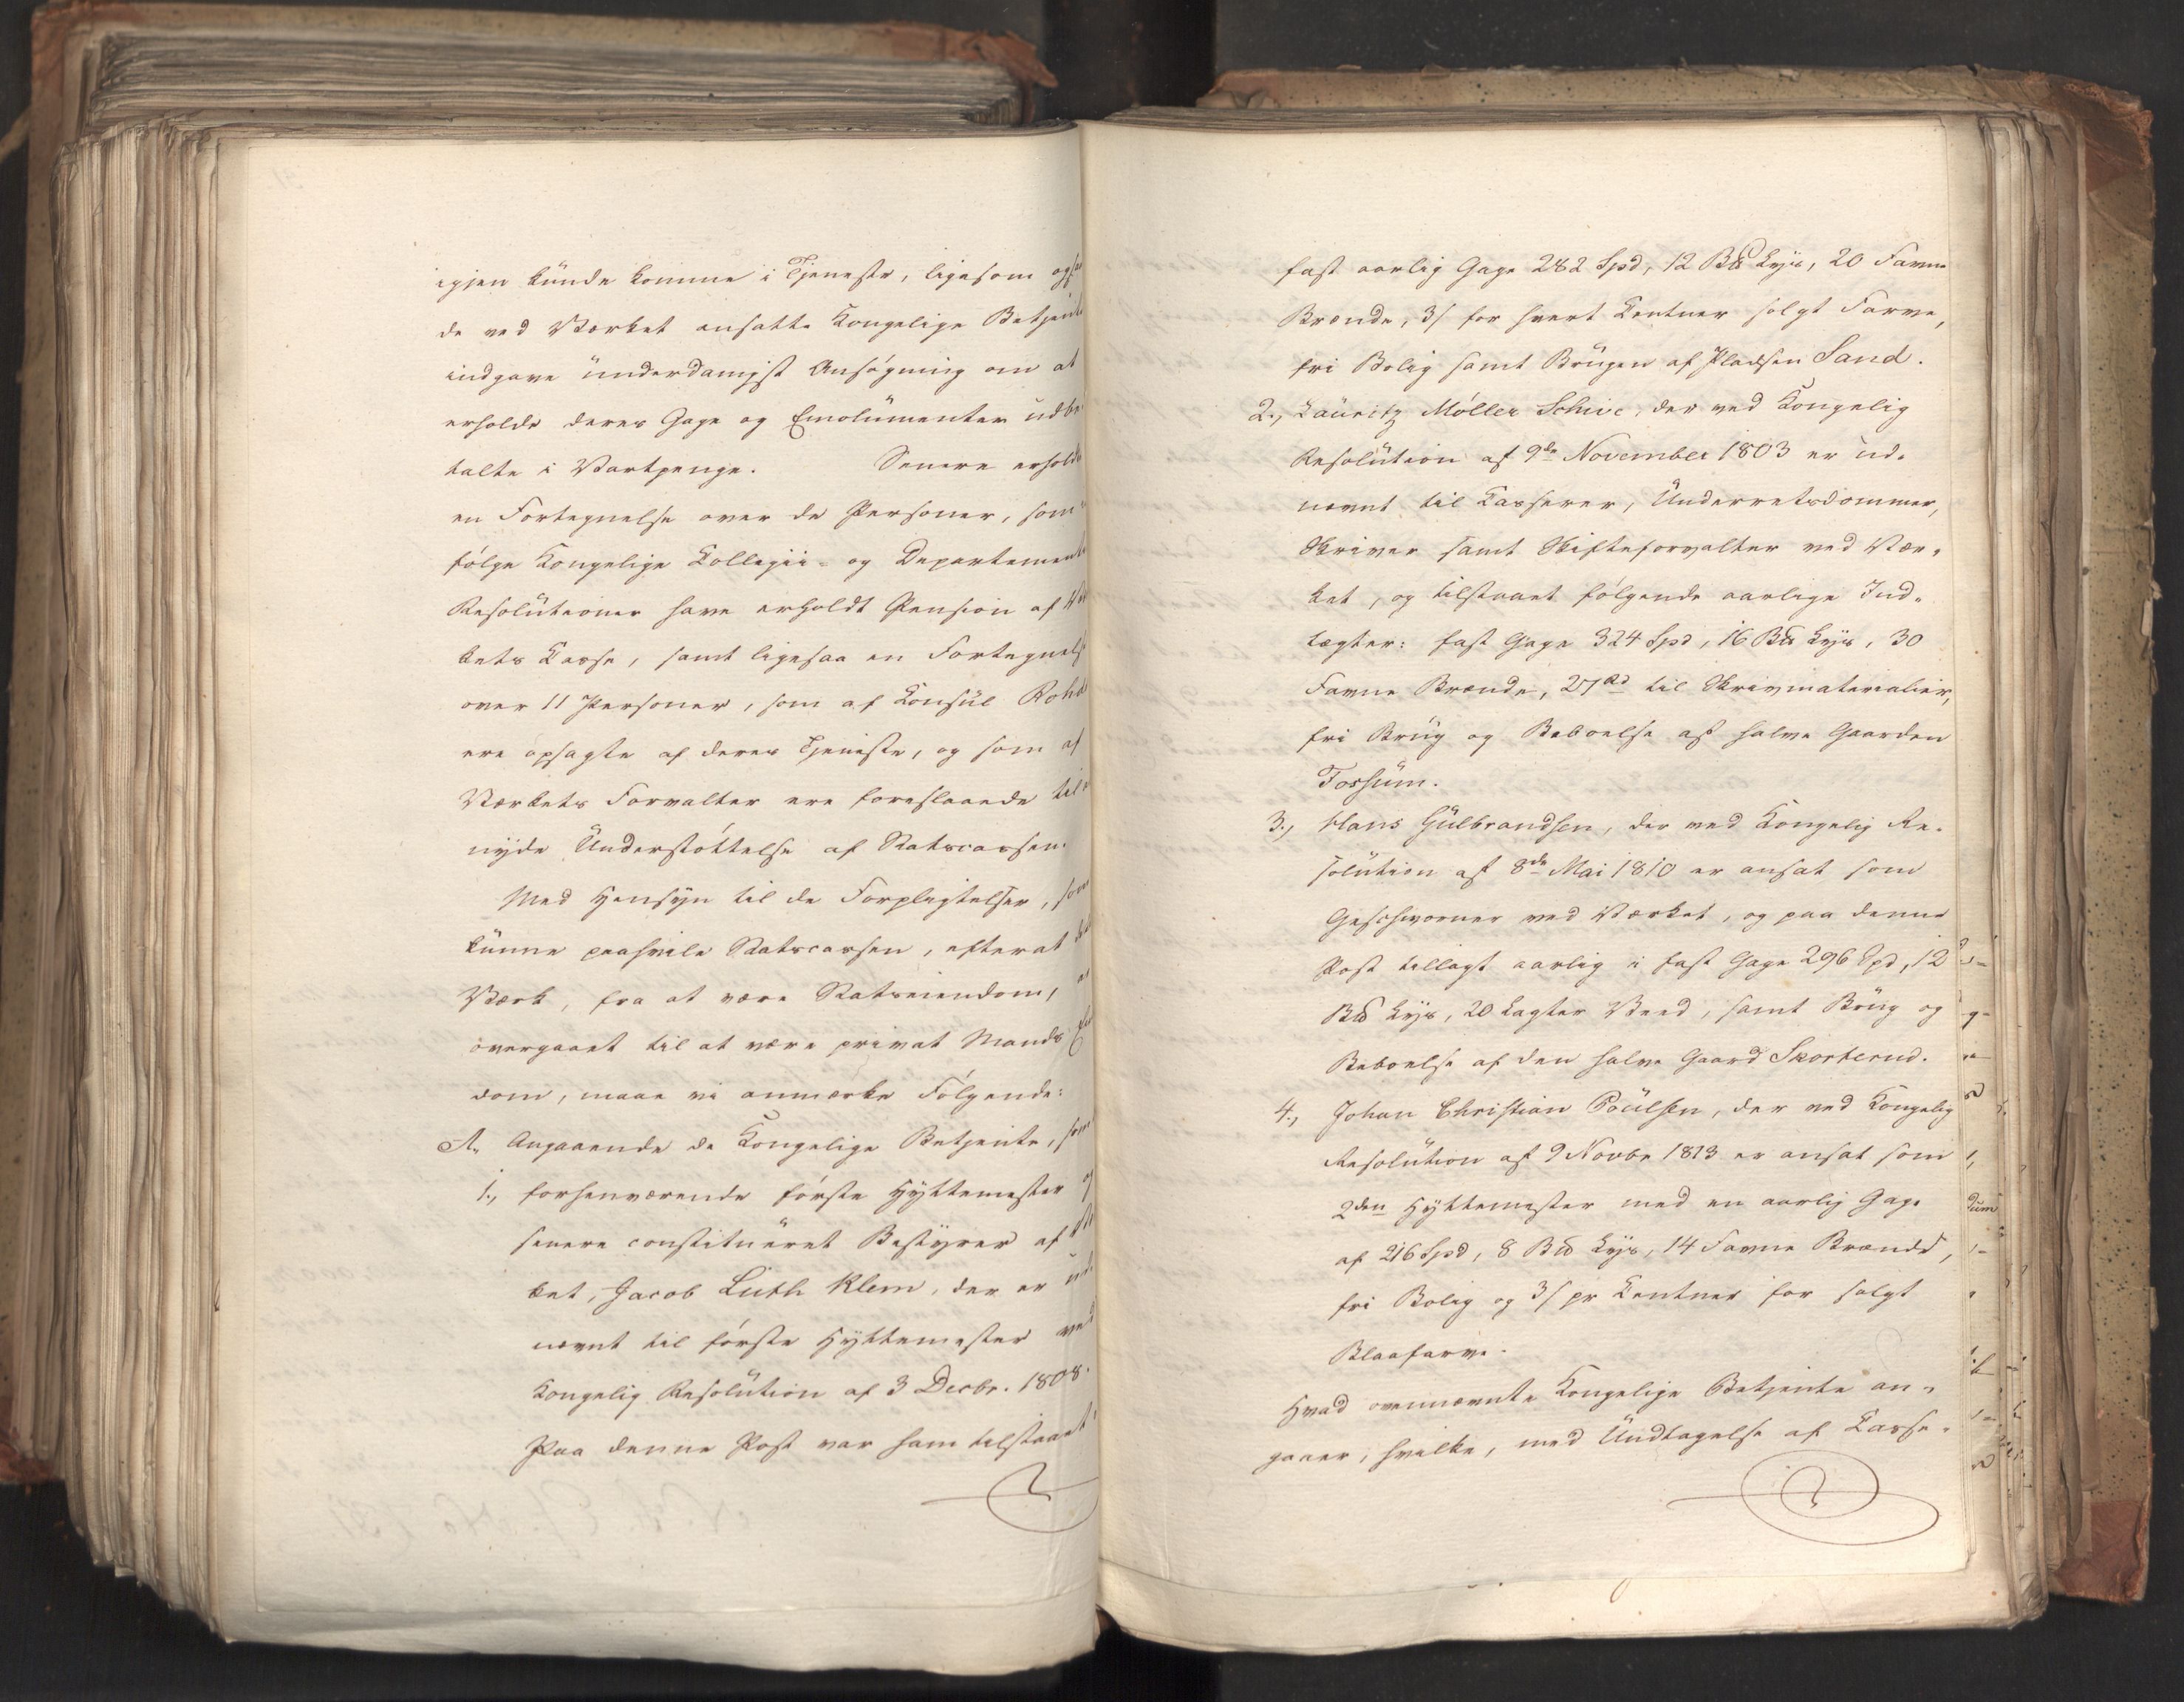 igjen kunde komme i Tjeneste, ligesom ogsaa
de ved Værket ansatte Kongelige Betjente
indgave underdanigst Ansøgning om at
erholde deres Gage og Emolumenter udbe-
talte i Vartpenge. Senere erholdt
en Fortegnelse over de Personer, som
følge Kongelige Collegii- og Departements
Resolutioner have erholdt Pension af Vær
kets Casse, samt ligesaa en Fortegnelse
over 11 Personer, som af Consul Rohde
ere opsagte af deres Tjeneste, og som af
Værkets Forvalter ere foreslaaede til at
nyde Understøttelse af Statscassen.
Med Hensyn til de Forpligtelser, som
kunne paahvile Statscassen, efterat dette
Værk, fra at være Statseiendom, er
overgaaet til at være privat Mands Eien
dom, maae vi anmærke Følgende:
A. Angaaende de Kongelige Betjente, som
1., forhenværende første Hyttemester og
senere constitueret Bestyrer af Vær
ket, Jacob Lüth Klem, der er ud
nævnt til første Hyttemester ved
Kongelig Resolution af 3 Decbr. 1808.
Paa denne Post var ham tilstaaet i
fast aarlig Gage 282 Spd, 12 B℔ Lys, 20 Favne
Brænde, 3/ for hvert Centner solgt Farve,
fri Bolig samt Brugen af Pladsen Sand.
2., Lauritz Møller Schive, der ved Kongelig
Resolution af 9de November 1803 er ud-
nævnt til Casserer, Underretsdommer,
Skriver samt Skifteforvalter ved Vær-
ket, og tilstaaet følgende aarlige Ind-
tægter: fast Gage 324 Spd, 16 B℔ Lys, 30
Favne Brænde, 27 Rd til Skrivmaterialier,
fri Brug og Beboelse af halve Gaarden
Fossum.
3., Hans Gulbrandsen, der ved Kongelig Re-
solution af 8de Mai 1810 er ansat som
Geschworner ved Værket, og paa denne
Post tillagt aarlig i fast Gage 296 Spd, 12
B℔ Lys, 20 Lagter Veed, samt Brug og
Beboelse af den halve Gaard Skorterud.
4., Johan Christian Poulsen, der ved Kongelig
Resolution af 9 Novbr 1813 er ansat som
2den Hyttemester med en aarlig Gage
af 216 Spd, 8 B℔ Lys, 14 Favne Brænde,
fri Bolig og 3/ pr Centner for solgt
Blaafarve.
Hvad ovennævnte Kongelige Betjente an-
gaaer, hvilke, med Undtagelse af Casse-